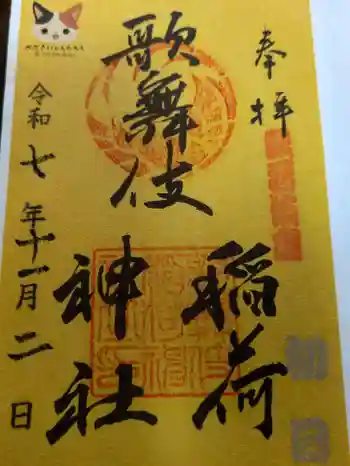 奉拝
歌舞伎
稲荷
神社
令和七年十一月二日
初日